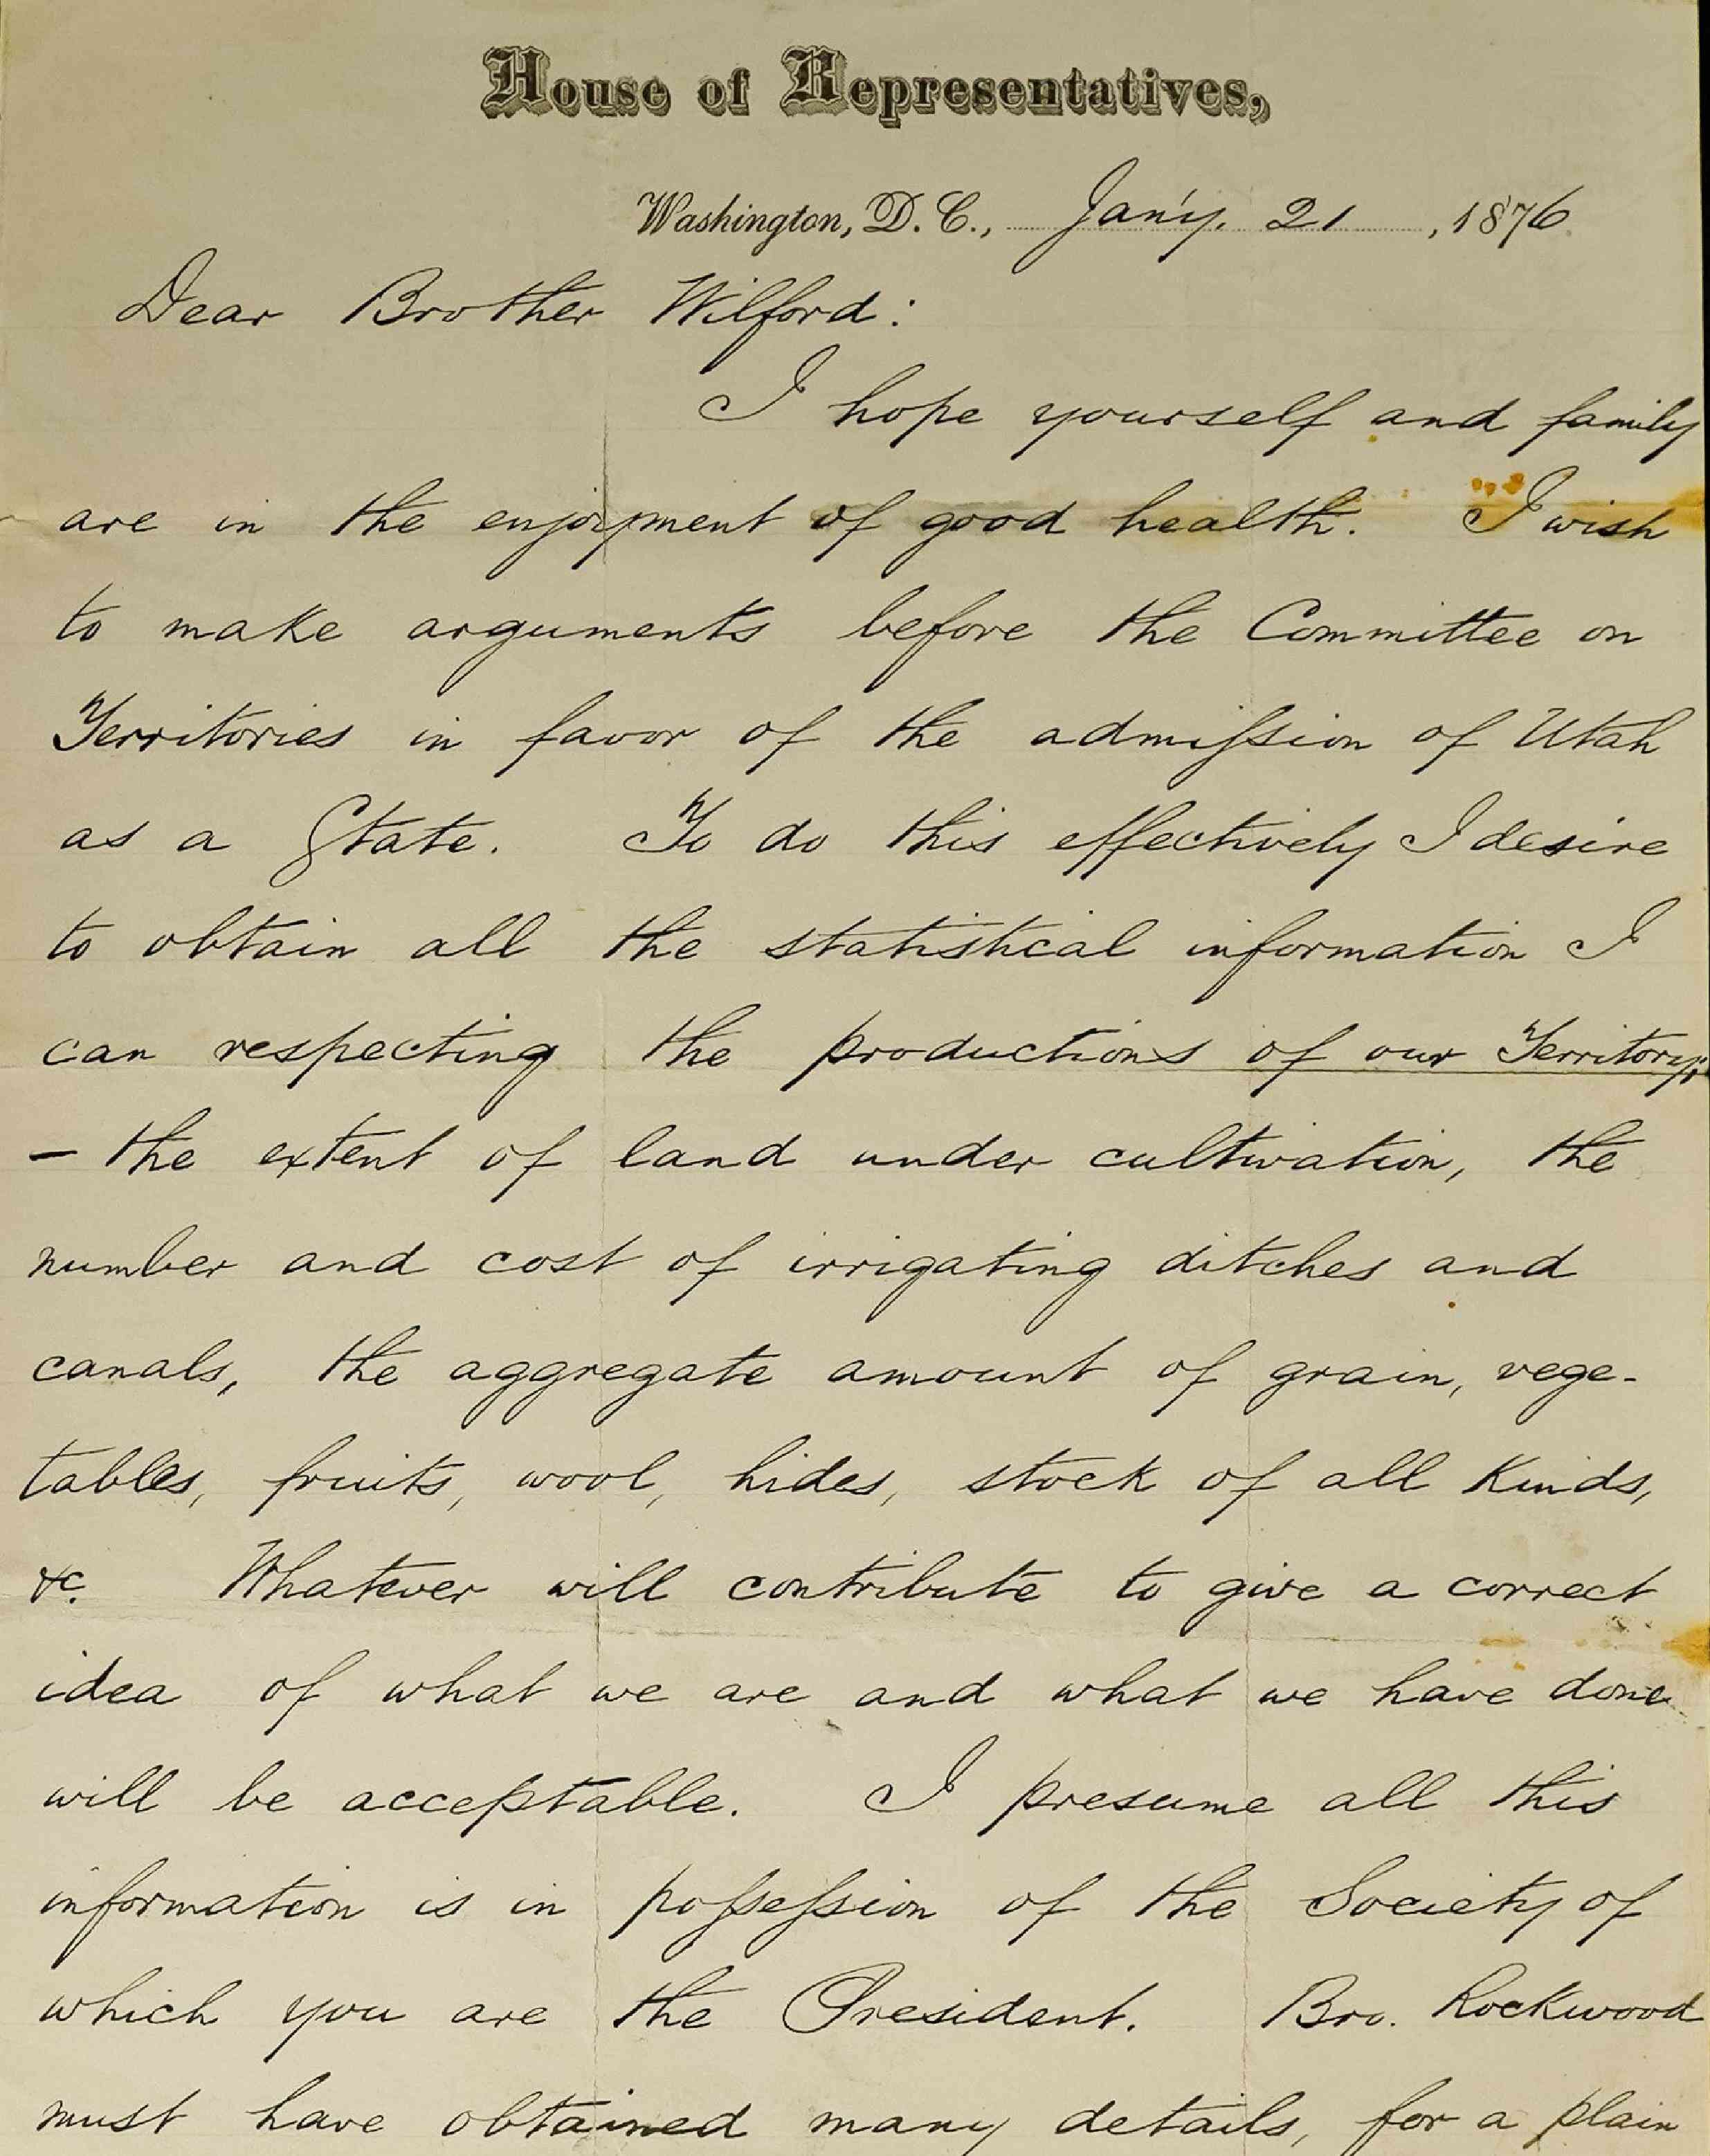 House of Representatives,
Washington, D. C., Jan'y. 21, 1876.
Dear Brother Wilford:
I hope yourself and family
are in the enjoyment of good health. I wish
to make arguments before the Committee on
Territories in favor of the admission of Utah
as a State. To do this effectively I desire
to obtain all the statistical information I
can respecting the productions of our Territory;
— the extent of land under cultivation, the
number and cost of irrigating ditches and
canals, the aggregate amount of grain, vege-
tables, fruits, wool, hides, stock of all kinds,
&c. Whatever will contribute to give a correct
idea of what we are and what we have done
will be acceptable. I presume all this
information is in possession of the Society of
which you are the President. Bro. Rockwood
must have obtained many details, for a plain